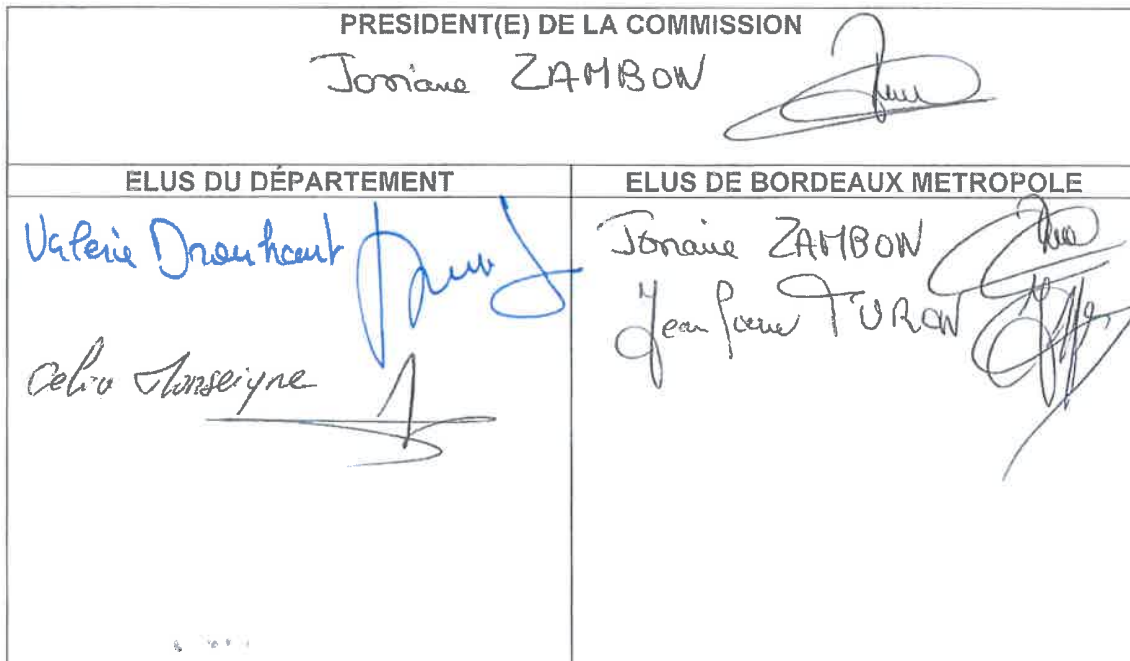 PRESIDENT(E) DE LA COMMISSION
Josiane ZAMBON
ELUS DU DÉPARTEMENT
ELUS DE BORDEAUX METROPOLE
Valérie Drouhaut
Celia Monseigne
Josiane ZAMBON
Jean Pierre TURON